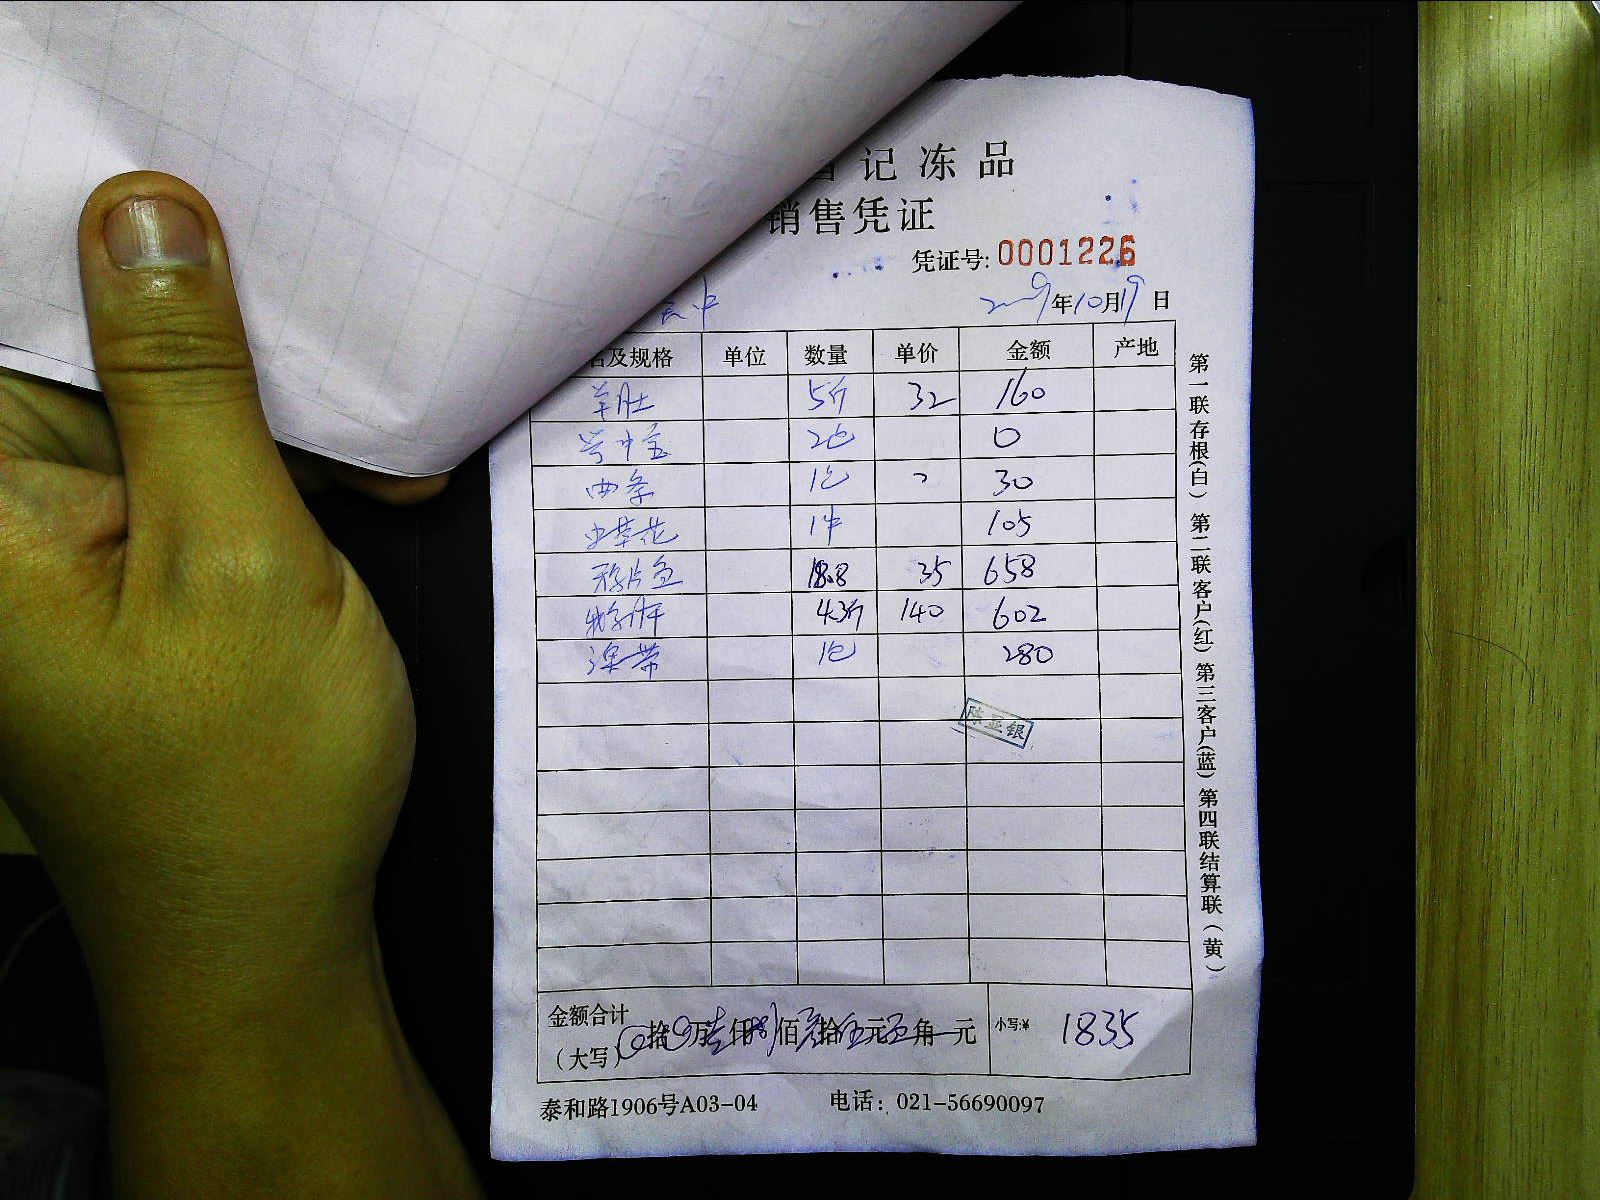 记冻品
销售凭证
凭证号: 0001226
2009年10月19日
名及规格 单位 数量 单价 金额 产地
羊肚 5斤 32 160
2包 0
1包 30
虫草花 1件 105
鸦片鱼 18.8 35 658
4.3斤 140 602
1包 280
陈亚银
金额合计
(大写) 拾 万 仟 佰 拾 元 角 元 小写:¥ 1835
泰和路1906号A03-04 电话: 021-56690097
第一联存根(白) 第二联客户(红) 第三客户(蓝) 第四联结算联(黄)